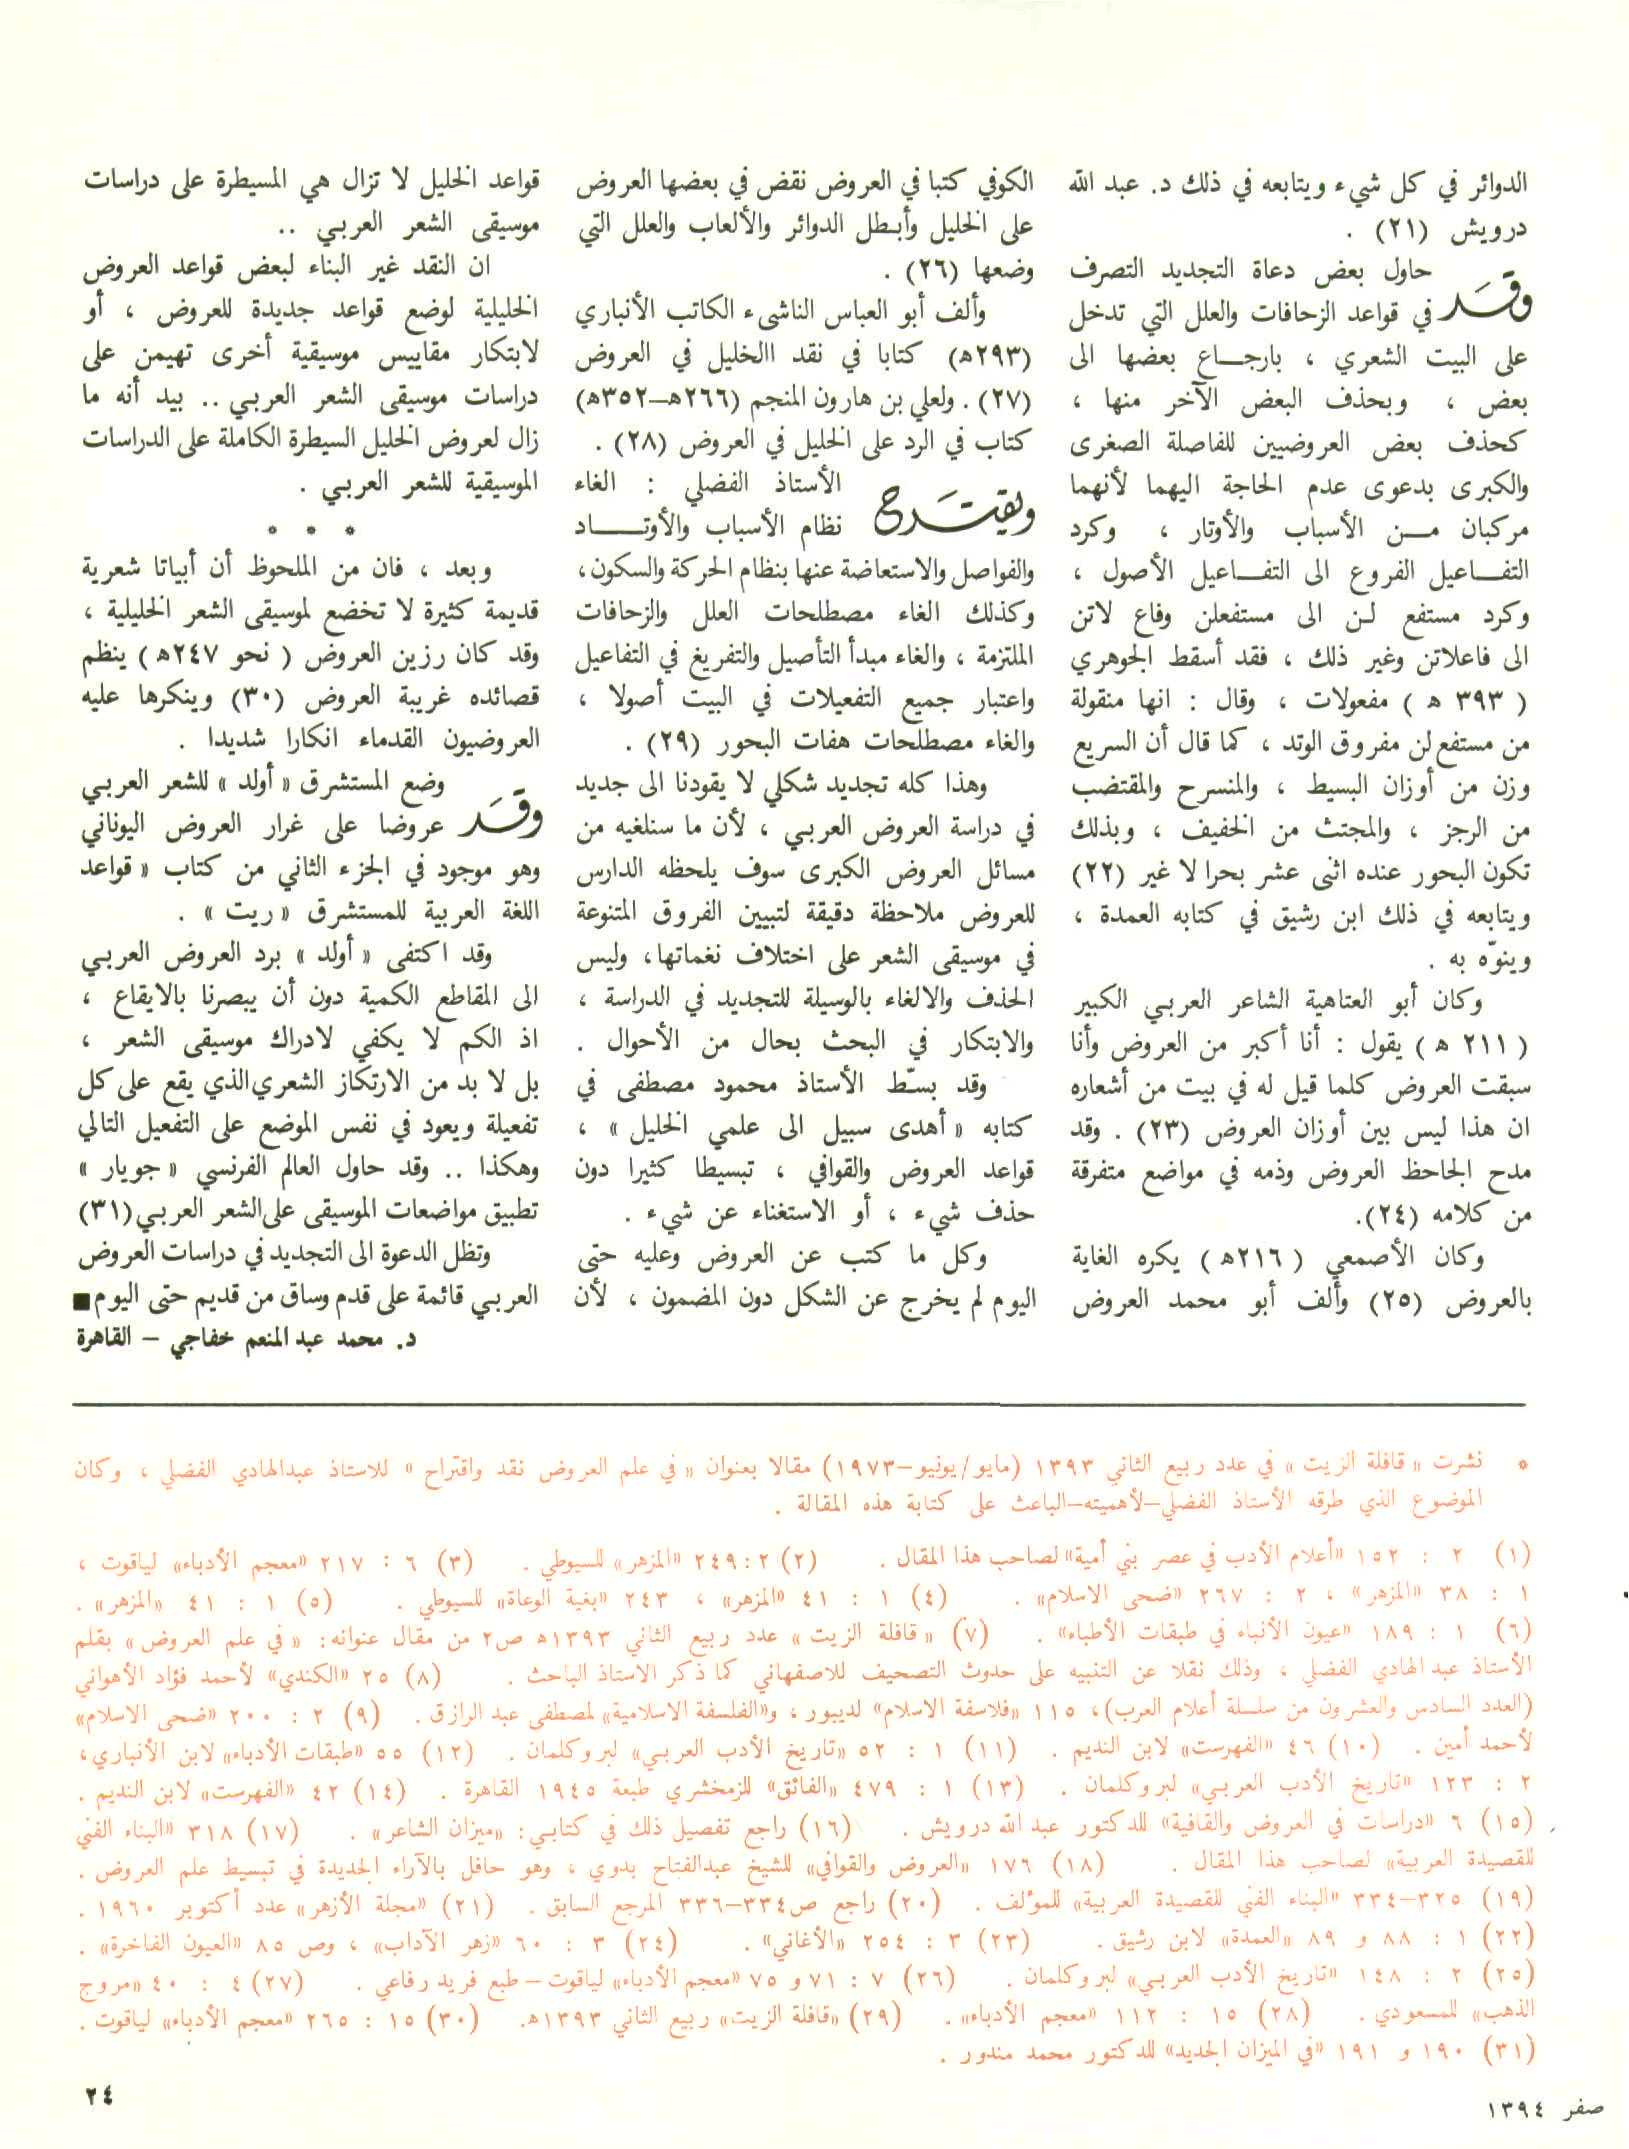 الدوائر في كل شيء ويتابعه في ذلك د. عبد الله
درويش (٢١) .
وقد حاول بعض دعاة التجديد التصرف
في قواعد الزحافات والعلل التي تدخل
على البيت الشعري ، بارجاع بعضها الى
بعض ، وبحذف البعض الآخر منها ،
كحذف بعض العروضيين للفاصلة الصغرى
والكبرى بدعوى عدم الحاجة اليهما لأنهما
مركبان من الأسباب والأوتار ، وكرد
التفاعيل الفروع الى التفاعيل الأصول ،
وكرد مستفع لن الى مستفعلن وفاع لاتن
الى فاعلاتن وغير ذلك ، فقد أسقط الجوهري
( ٣٩٣ ه ) مفعولات ، وقال : انها منقولة
من مستفع لن مفروق الوتد ، كما قال أن السريع
وزن من أوزان البسيط ، والمنسرح والمقتضب
من الرجز ، والمجتث من الخفيف ، وبذلك
تكون البحور عنده اثنى عشر بحرا لا غير (٢٢)
ويتابعه في ذلك ابن رشيق في كتابه العمدة ،
وينوّه به .
وكان أبو العتاهية الشاعر العربي الكبير
( ٢١١ ه ) يقول : أنا أكبر من العروض وأنا
سبقت العروض كلما قيل له في بيت من أشعاره
ان هذا ليس بين أوزان العروض (٢٣) . وقد
مدح الجاحظ العروض وذمه في مواضع متفرقة
من كلامه (٢٤).
وكان الأصمعي ( ٢١٦ه ) يكره الغاية
بالعروض (٢٥) وألف أبو محمد العروض
الكوفي كتبا في العروض نقض في بعضها العروض
على الخليل وأبطل الدوائر والألعاب والعلل التي
وضعها (٢٦) .
وألف أبو العباس الناشىء الكاتب الأنباري
(٢٩٣ه) كتابا في نقد االخليل في العروض
(٢٧) . ولعلي بن هارون المنجم (٢٦٦ه–٣٥٢ه)
كتاب في الرد على الخليل في العروض (٢٨) .
ويقترح الأستاذ الفضلي : الغاء
نظام الأسباب والأوتاد
والفواصل والاستعاضة عنها بنظام الحركة والسكون،
وكذلك الغاء مصطلحات العلل والزحافات
الملتزمة ، والغاء مبدأ التأصيل والتفريغ في التفاعيل
واعتبار جميع التفعيلات في البيت أصولا ،
والغاء مصطلحات هفات البحور (٢٩) .
وهذا كله تجديد شكلي لا يقودنا الى جديد
في دراسة العروض العربي ، لأن ما سنلغيه من
مسائل العروض الكبرى سوف يلحظه الدارس
للعروض ملاحظة دقيقة لتبيين الفروق المتنوعة
في موسيقى الشعر على اختلاف نغماتها، وليس
الحذف والالغاء بالوسيلة للتجديد في الدراسة ،
والابتكار في البحث بحال من الأحوال .
وقد بسّط الأستاذ محمود مصطفى في
كتابه « أهدى سبيل الى علمي الخليل » ،
قواعد العروض والقوافي ، تبسيطا كثيرا دون
حذف شيء ، أو الاستغناء عن شيء .
وكل ما كتب عن العروض وعليه حتى
اليوم لم يخرج عن الشكل دون المضمون ، لأن
قواعد الخليل لا تزال هي المسيطرة على دراسات
موسيقى الشعر العربي ..
ان النقد غير البناء لبعض قواعد العروض
الخليلية لوضع قواعد جديدة للعروض ، أو
لابتكار مقاييس موسيقية أخرى تهيمن على
دراسات موسيقى الشعر العربي .. بيد أنه ما
زال لعروض الخليل السيطرة الكاملة على الدراسات
الموسيقية للشعر العربي .
* * *
وبعد ، فان من الملحوظ أن أبياتا شعرية
قديمة كثيرة لا تخضع لموسيقى الشعر الخليلية ،
وقد كان رزين العروض ( نحو ٢٤٧ه ) ينظم
قصائده غريبة العروض (٣٠) وينكرها عليه
العروضيون القدماء انكارا شديدا .
وقد وضع المستشرق « أولد » للشعر العربي
عروضا على غرار العروض اليوناني
وهو موجود في الجزء الثاني من كتاب « قواعد
اللغة العربية للمستشرق « ريت » .
وقد اكتفى « أولد » برد العروض العربي
الى المقاطع الكمية دون أن يبصرنا بالايقاع ،
اذ الكم لا يكفي لادراك موسيقى الشعر ،
بل لا بد من الارتكاز الشعري الذي يقع على كل
تفعيلة ويعود في نفس الموضع على التفعيل التالي
وهكذا .. وقد حاول العالم الفرنسي « جويار »
تطبيق مواضعات الموسيقى على الشعر العربي (٣١)
وتظل الدعوة الى التجديد في دراسات العروض
العربي قائمة على قدم وساق من قديم حتى اليوم ■
د. محمد عبد المنعم خفاجي – القاهرة
* نشرت « قافلة الزيت » في عدد ربيع الثاني ١٣٩٣ (مايو/يونيو–١٩٧٣) مقالا بعنوان « في علم العروض نقد واقتراح » للاستاذ عبدالهادي الفضلي ، وكان
الموضوع الذي طرقه الأستاذ الفضلي–لأهميته–الباعث على كتابة هذه المقالة .
(١) ٢ : ١٥٢ «أعلام الأدب في عصر بني أمية» لصاحب هذا المقال . (٢) ٢ : ٢٤٩ «المزهر» للسيوطي . (٣) ٦ : ٢١٧ «معجم الأدباء» لياقوت ،
١ : ٣٨ «المزهر» ، ٢ : ٢٦٧ «ضحى الاسلام» . (٤) ١ : ٤١ «المزهر» ، ٢٤٣ «بغية الوعاة» للسيوطي . (٥) ١ : ٤١ «المزهر» .
(٦) ١ : ١٨٩ «عيون الأنباء في طبقات الأطباء» . (٧) « قافلة الزيت » عدد ربيع الثاني ١٣٩٣ه ص٢ من مقال عنوانه: « في علم العروض » بقلم
الأستاذ عبد الهادي الفضلي ، وذلك نقلا عن التنبيه على حدوث التصحيف للاصفهاني كما ذكر الاستاذ الباحث . (٨) ٢٥ «الكندي» لأحمد فؤاد الأهواني
(العدد السادس والعشرون من سلسلة أعلام العرب)، ١١٥ «فلاسفة الاسلام» لديبور ، و«الفلسفة الاسلامية» لمصطفى عبد الرازق . (٩) ٢ : ٢٠٠ «ضحى الاسلام»
لأحمد أمين . (١٠) ٤٦ «الفهرست» لابن النديم . (١١) ١ : ٥٢ «تاريخ الأدب العربي» لبروكلمان . (١٢) ٥٥ «طبقات الأدباء» لابن الأنباري،
٢ : ١٢٣ «تاريخ الأدب العربي» لبروكلمان . (١٣) ١ : ٤٧٩ «الفائق» للزمخشري طبعة ١٩٤٥ القاهرة . (١٤) ٤٢ «الفهرست» لابن النديم .
(١٥) ٦ «دراسات في العروض والقافية» للدكتور عبد الله درويش . (١٦) راجع تفصيل ذلك في كتابي: «ميزان الشاعر» . (١٧) ٣١٨ «البناء الفني
للقصيدة العربية» لصاحب هذا المقال . (١٨) ١٧٦ «العروض والقوافي» للشيخ عبدالفتاح بدوي ، وهو حافل بالآراء الجديدة في تبسيط علم العروض .
(١٩) ٣٢٥–٣٣٤ «البناء الفني للقصيدة العربية» للمؤلف . (٢٠) راجع ص٣٣٤–٣٣٦ المرجع السابق . (٢١) «مجلة الأزهر» عدد أكتوبر ١٩٦٠ .
(٢٢) ١ : ٨٨ و ٨٩ «العمدة» لابن رشيق . (٢٣) ٣ : ٢٥٤ «الأغاني» . (٢٤) ٣ : ٦٠ «زهر الآداب» ، وص ٨٥ «العيون الفاخرة» .
(٢٥) ٢ : ١٤٨ «تاريخ الأدب العربي» لبروكلمان . (٢٦) ٧ : ٧١ و ٧٥ «معجم الأدباء» لياقوت – طبع فريد رفاعي . (٢٧) ٤ : ٤٠ «مروج
الذهب» للمسعودي . (٢٨) ١٥ : ١١٢ «معجم الأدباء» . (٢٩) «قافلة الزيت» ربيع الثاني ١٣٩٣ه. (٣٠) ١٥ : ٢٦٥ «معجم الأدباء» لياقوت .
(٣١) ١٩٠ و ١٩١ «في الميزان الجديد» للدكتور محمد مندور .
صفر ١٣٩٤
٢٤